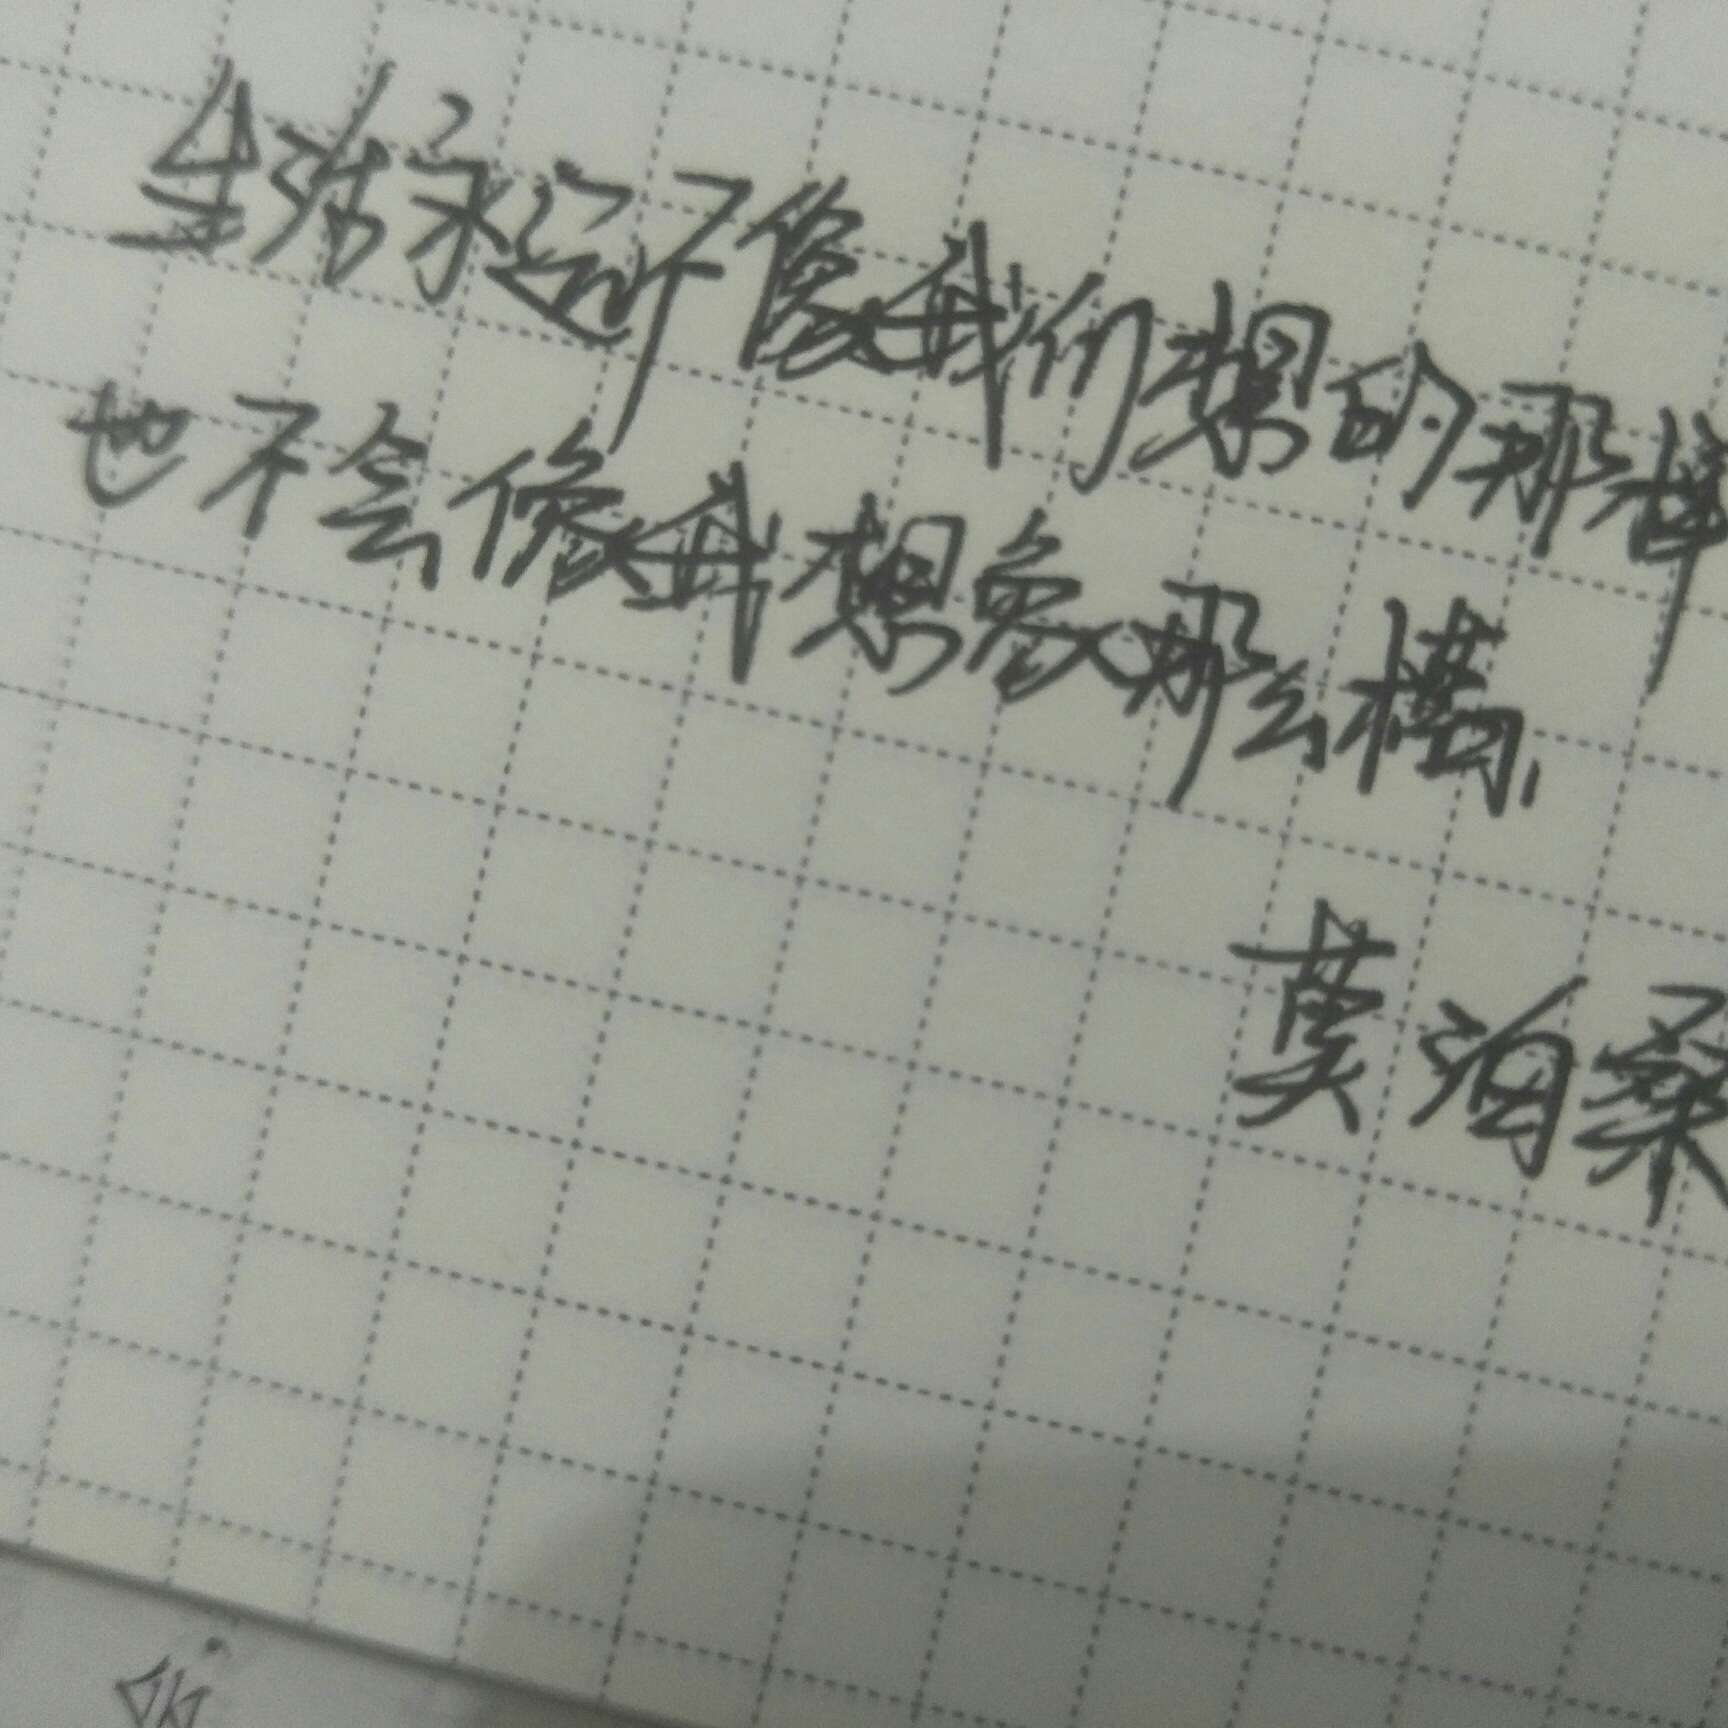 生活永远不像我们想的那样
也不会像我想象那么糟、
莫泊桑